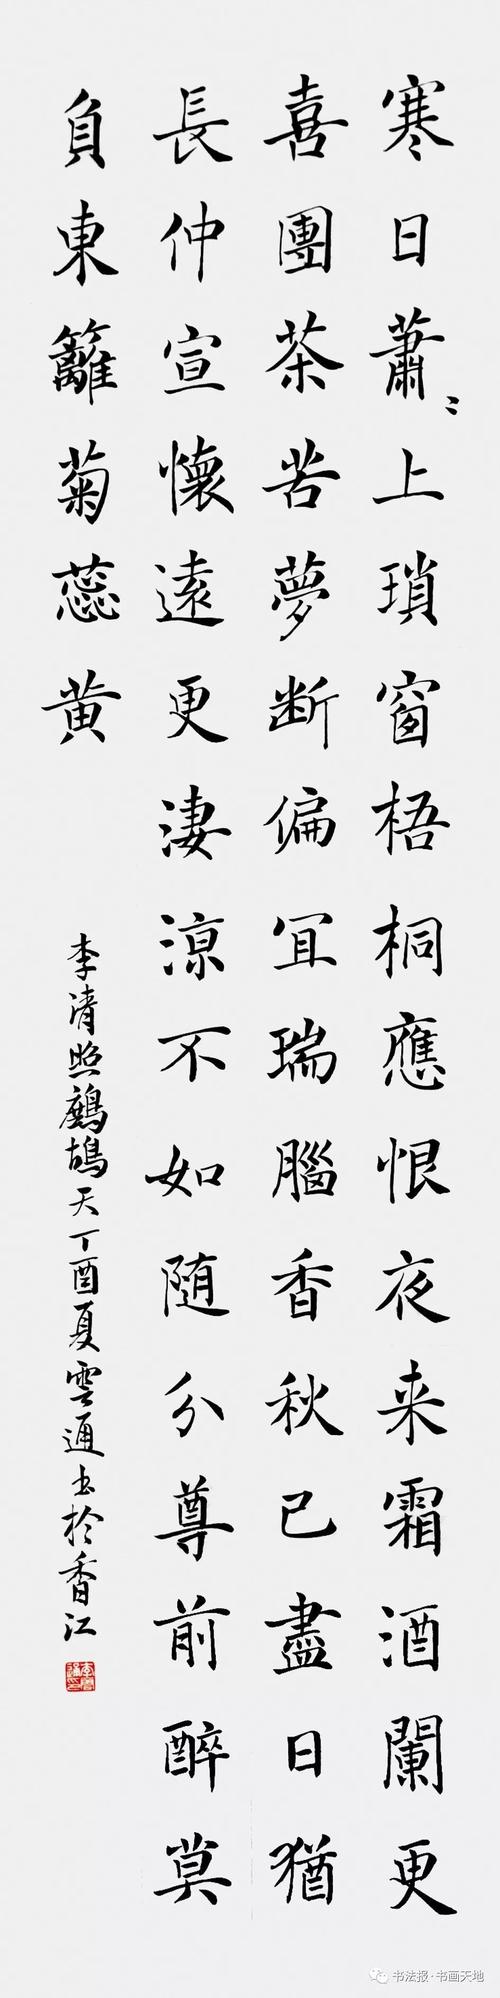 寒日蕭〻上瑣窗梧桐應恨夜来霜酒闌更
喜團茶苦夢断偏宜瑞腦香秋已盡日猶
長仲宣懷遠更淒涼不如随分尊前醉莫
負東籬菊蕊黄
李清照鷓鴣天丁酉夏雲通书於香江
书法报·书画天地